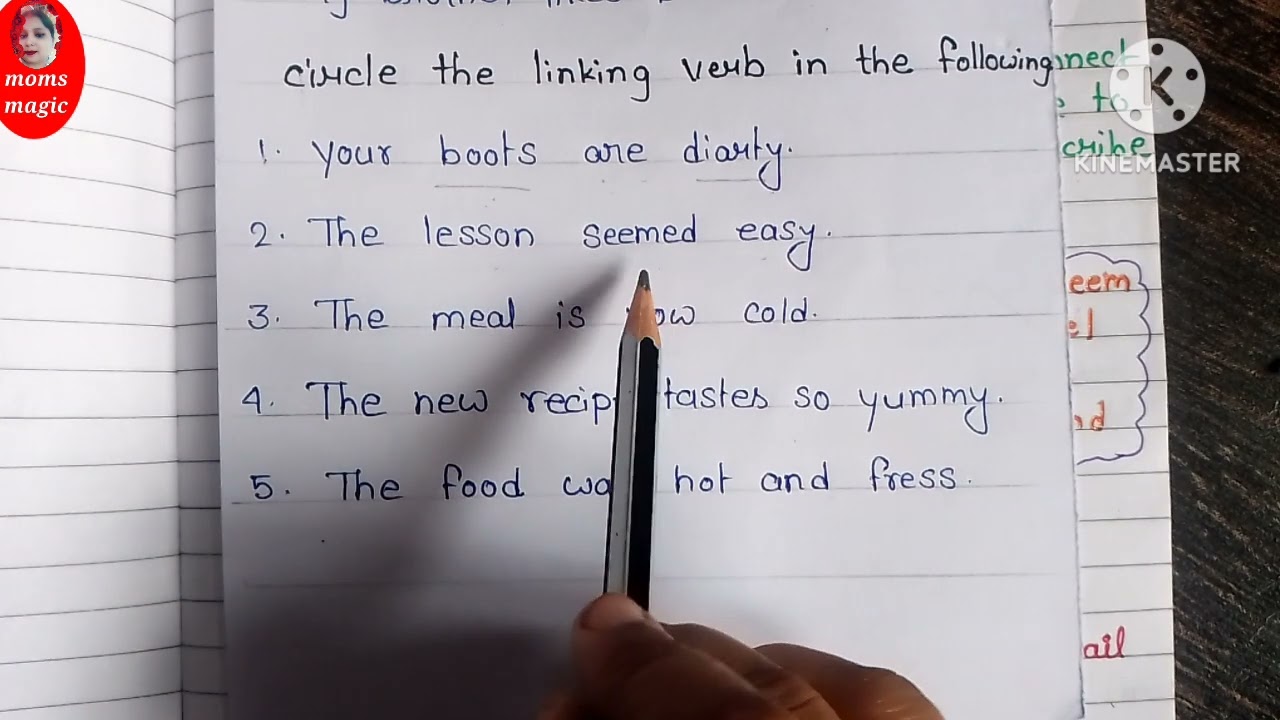 moms
magic
circle the linking verb in the following
1. your boots are diarty.
2. The lesson seemed easy.
3. The meal is now cold.
4. The new recipe tastes so yummy.
5. The food was hot and fress.
nnect
to
cribe
KINEMASTER
eem
el
ail